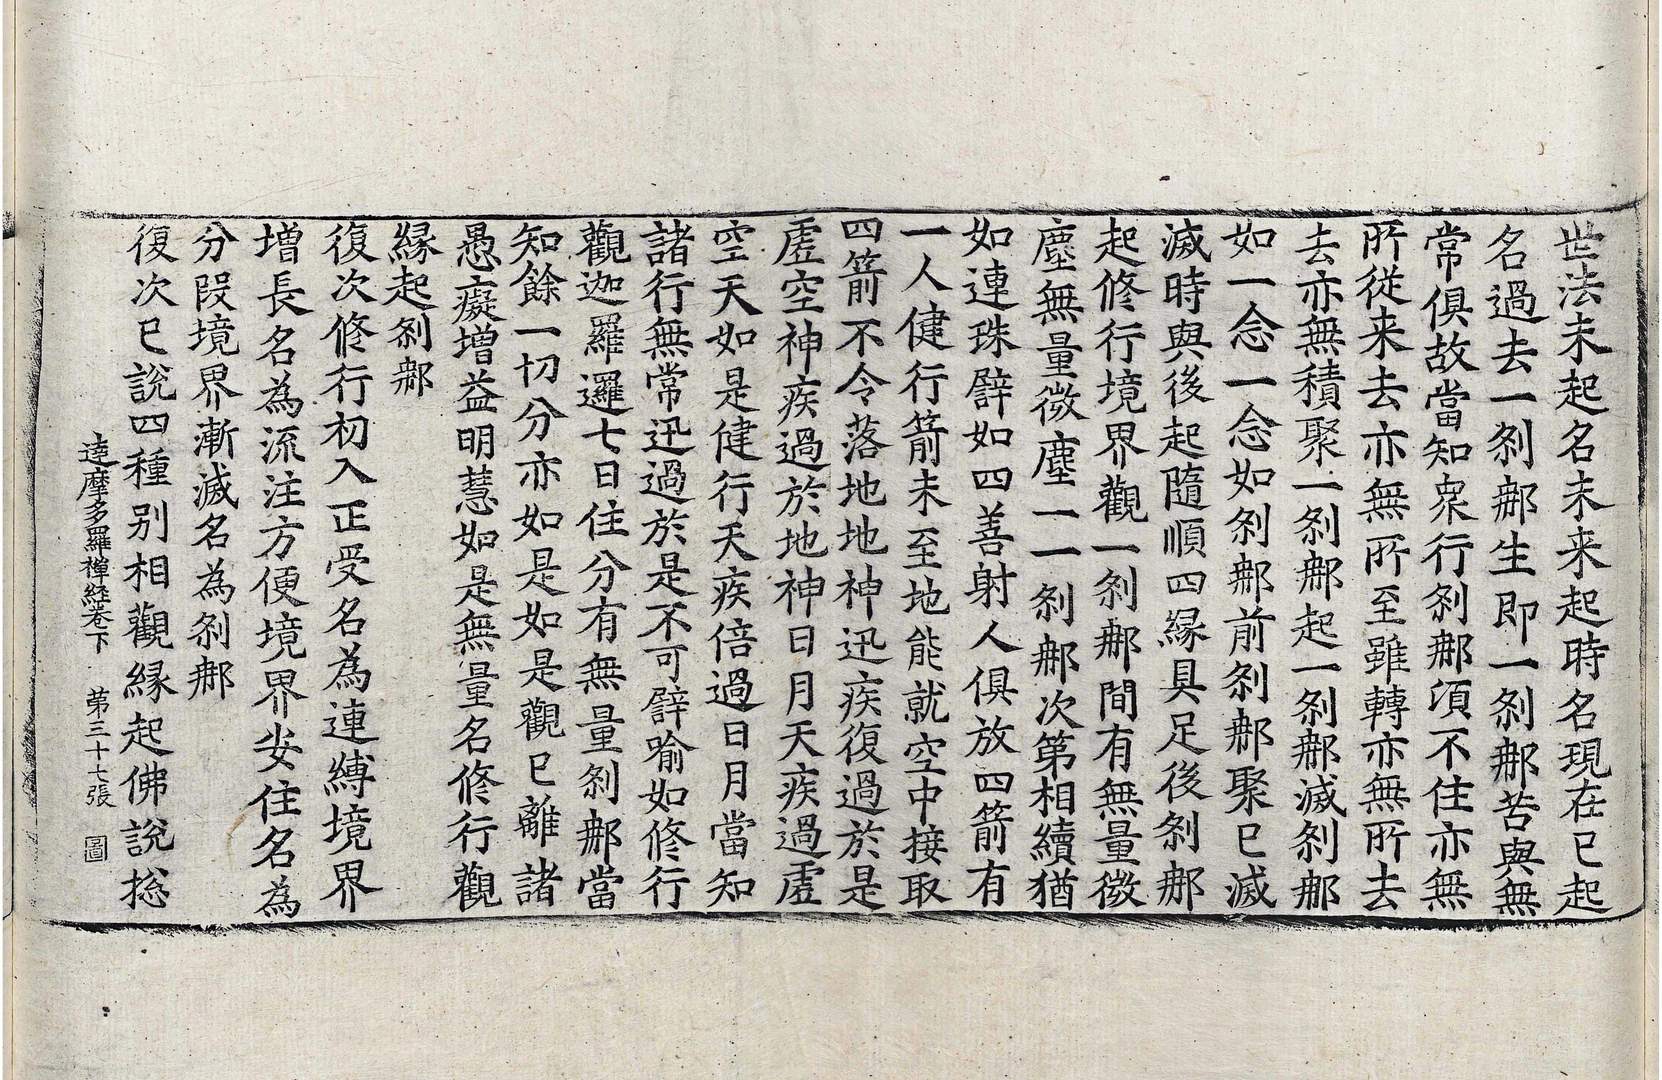 世法未起名未来起時名現在已起
名過去一刹那生即一刹那苦與無
常俱故當知衆行刹那湏不住亦無
所従来去亦無所至雖轉亦無所去
去亦無積聚一刹那起一刹那滅刹那
如一念一念如刹那前刹那聚已滅
滅時與後起隨順四縁具足後刹那
起修行境界觀一刹那間有無量微
塵無量微塵一一刹那次第相續猶
如連珠譬如四善射人俱放四箭有
一人健行箭未至地能就空中接取
四箭不令落地地神迅疾復過於是
虛空神疾過於地神日月天疾過虛
空天如是健行天疾倍過日月當知
諸行無常迅過於是不可譬喻如修行
觀迦羅邏七日住分有無量刹那當
知餘一切分亦如是如是觀已離諸
愚癡增益明慧如是無量名修行觀
縁起刹那
復次修行初入正受名為連縛境界
增長名為流注方便境界安住名為
分段境界漸滅名為刹那
復次已說四種别相觀縁起佛說捴
達摩多羅禅経卷下 第三十七張 圖